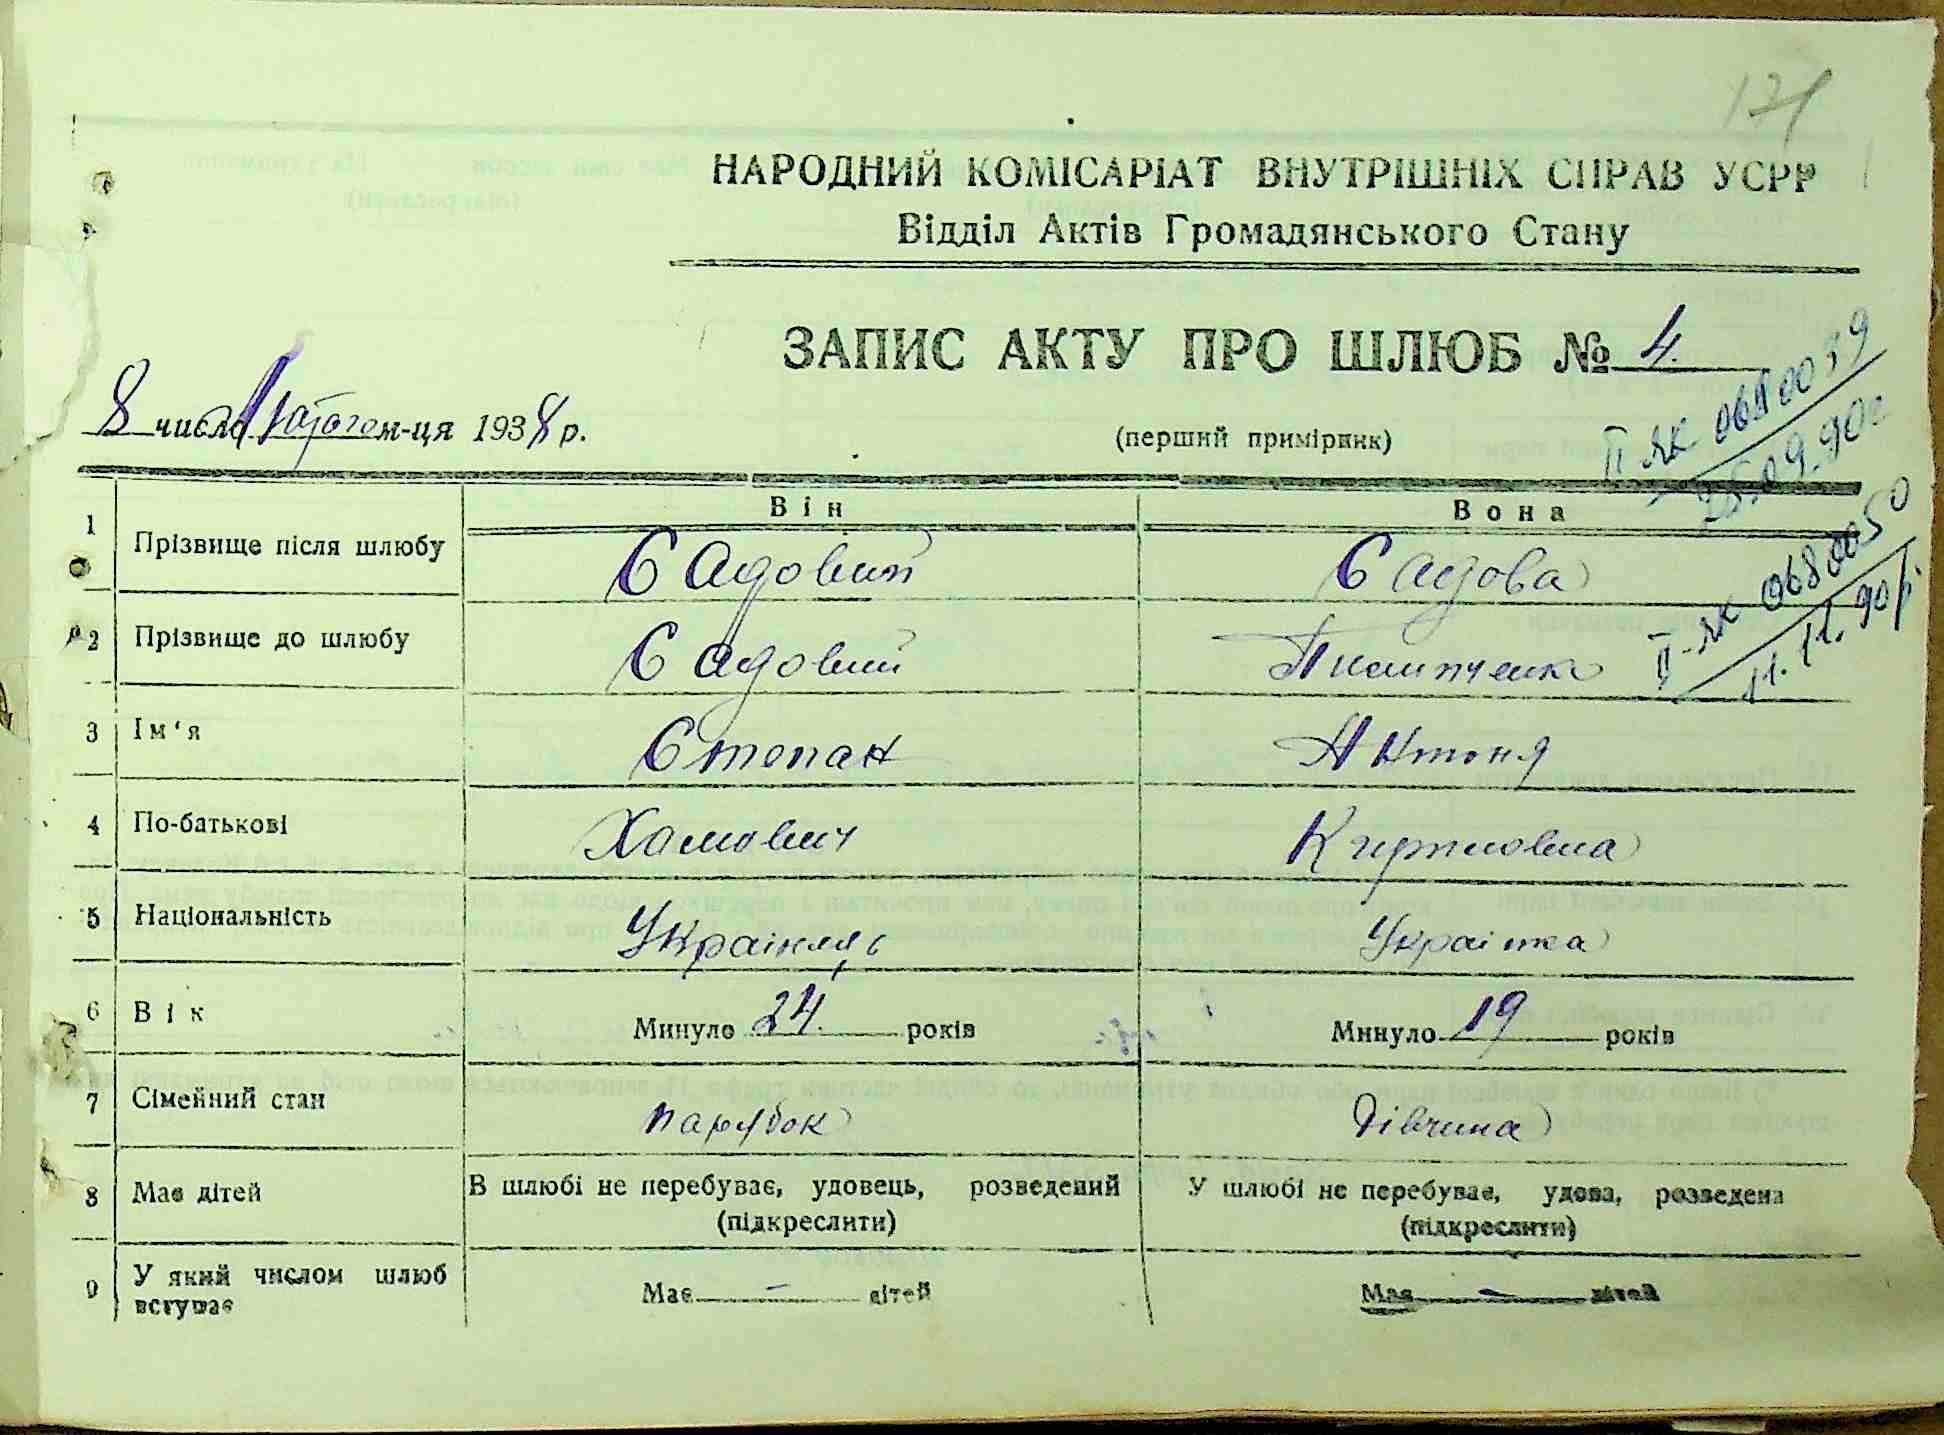 171
НАРОДНИЙ КОМІСАРІАТ ВНУТРІШНІХ СПРАВ УСРР
Відділ Актів Громадянського Стану
ЗАПИС АКТУ ПРО ШЛЮБ № 4.
8 число Лютого м-ця 1938 р.
(перший примірник)
ІІ ЯК 0680039
25.09.90р
ІІ-ЯК 0680050
11.11.90р.
Він Вона
1 Прізвище після шлюбу Садовий Садова
2 Прізвище до шлюбу Садовий Пилипченко
3 Ім‘я Степан Антоня
4 По-батькові Хамович Кириловна
5 Національність Українець Українка
6 Вік Минуло 24. років Минуло 19 років
7 Сімейний стан парубок Дівчина
8 Має дітей В шлюбі не перебуває, удовець, розведений (підкреслити) У шлюбі не перебуває, удова, розведена (підкреслити)
9 У який числом шлюб вступає Має - дітей Має - дітей